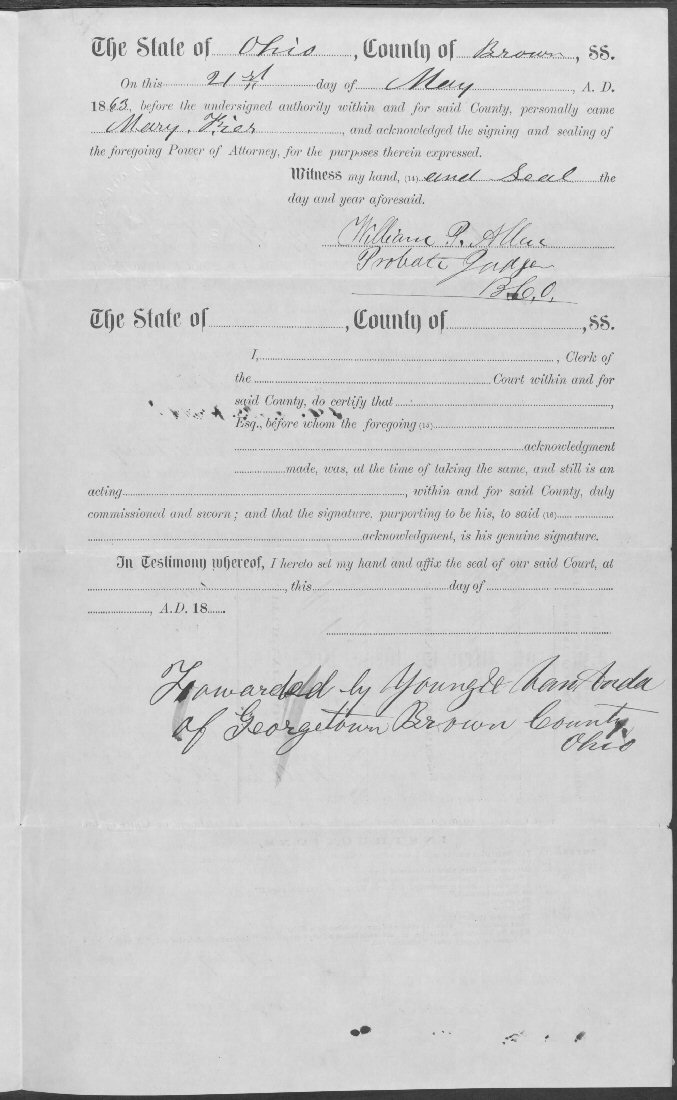 The State of Ohio, County of Brown, SS.
On this 21st day of May, A. D.
1863, before the undersigned authority within and for said County, personally came
Mary Kier, and acknowledged the signing and sealing of
the foregoing Power of Attorney, for the purposes therein expressed.
Witness my hand, (14) and Seal the
day and year aforesaid.
William P. Allen
Probate Judge
B.C.O.
The State of, County of, SS.
I,, Clerk of
the Court within and for
said County, do certify that,
Esq., before whom the foregoing (15)
acknowledgment
made, was, at the time of taking the same, and still is an
acting, within and for said County, duly
commissioned and sworn; and that the signature, purporting to be his, to said (16)
acknowledgment, is his genuine signature.
In Testimony whereof, I hereto set my hand and affix the seal of our said Court, at
, this day of
, A.D. 18
by Young &
of Georgetown Brown County
Ohio